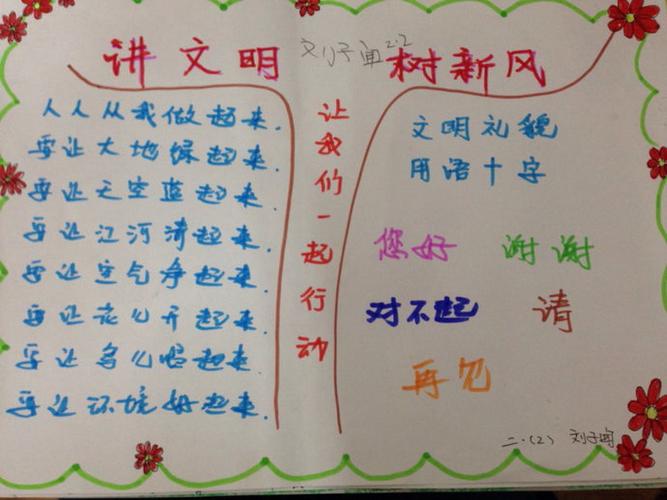 讲文明 刘子 2.2 树新风
人人从我做起来.
要让大地绿起来.
要让天空蓝起来.
要让江河清起来.
要让空气净起来.
要让花儿开起来.
要让鸟儿唱起来.
要让环境好起来.
让我们一起行动
文明礼貌
用语十字
您好 谢谢
对不起 请
再见
二.(2) 刘子